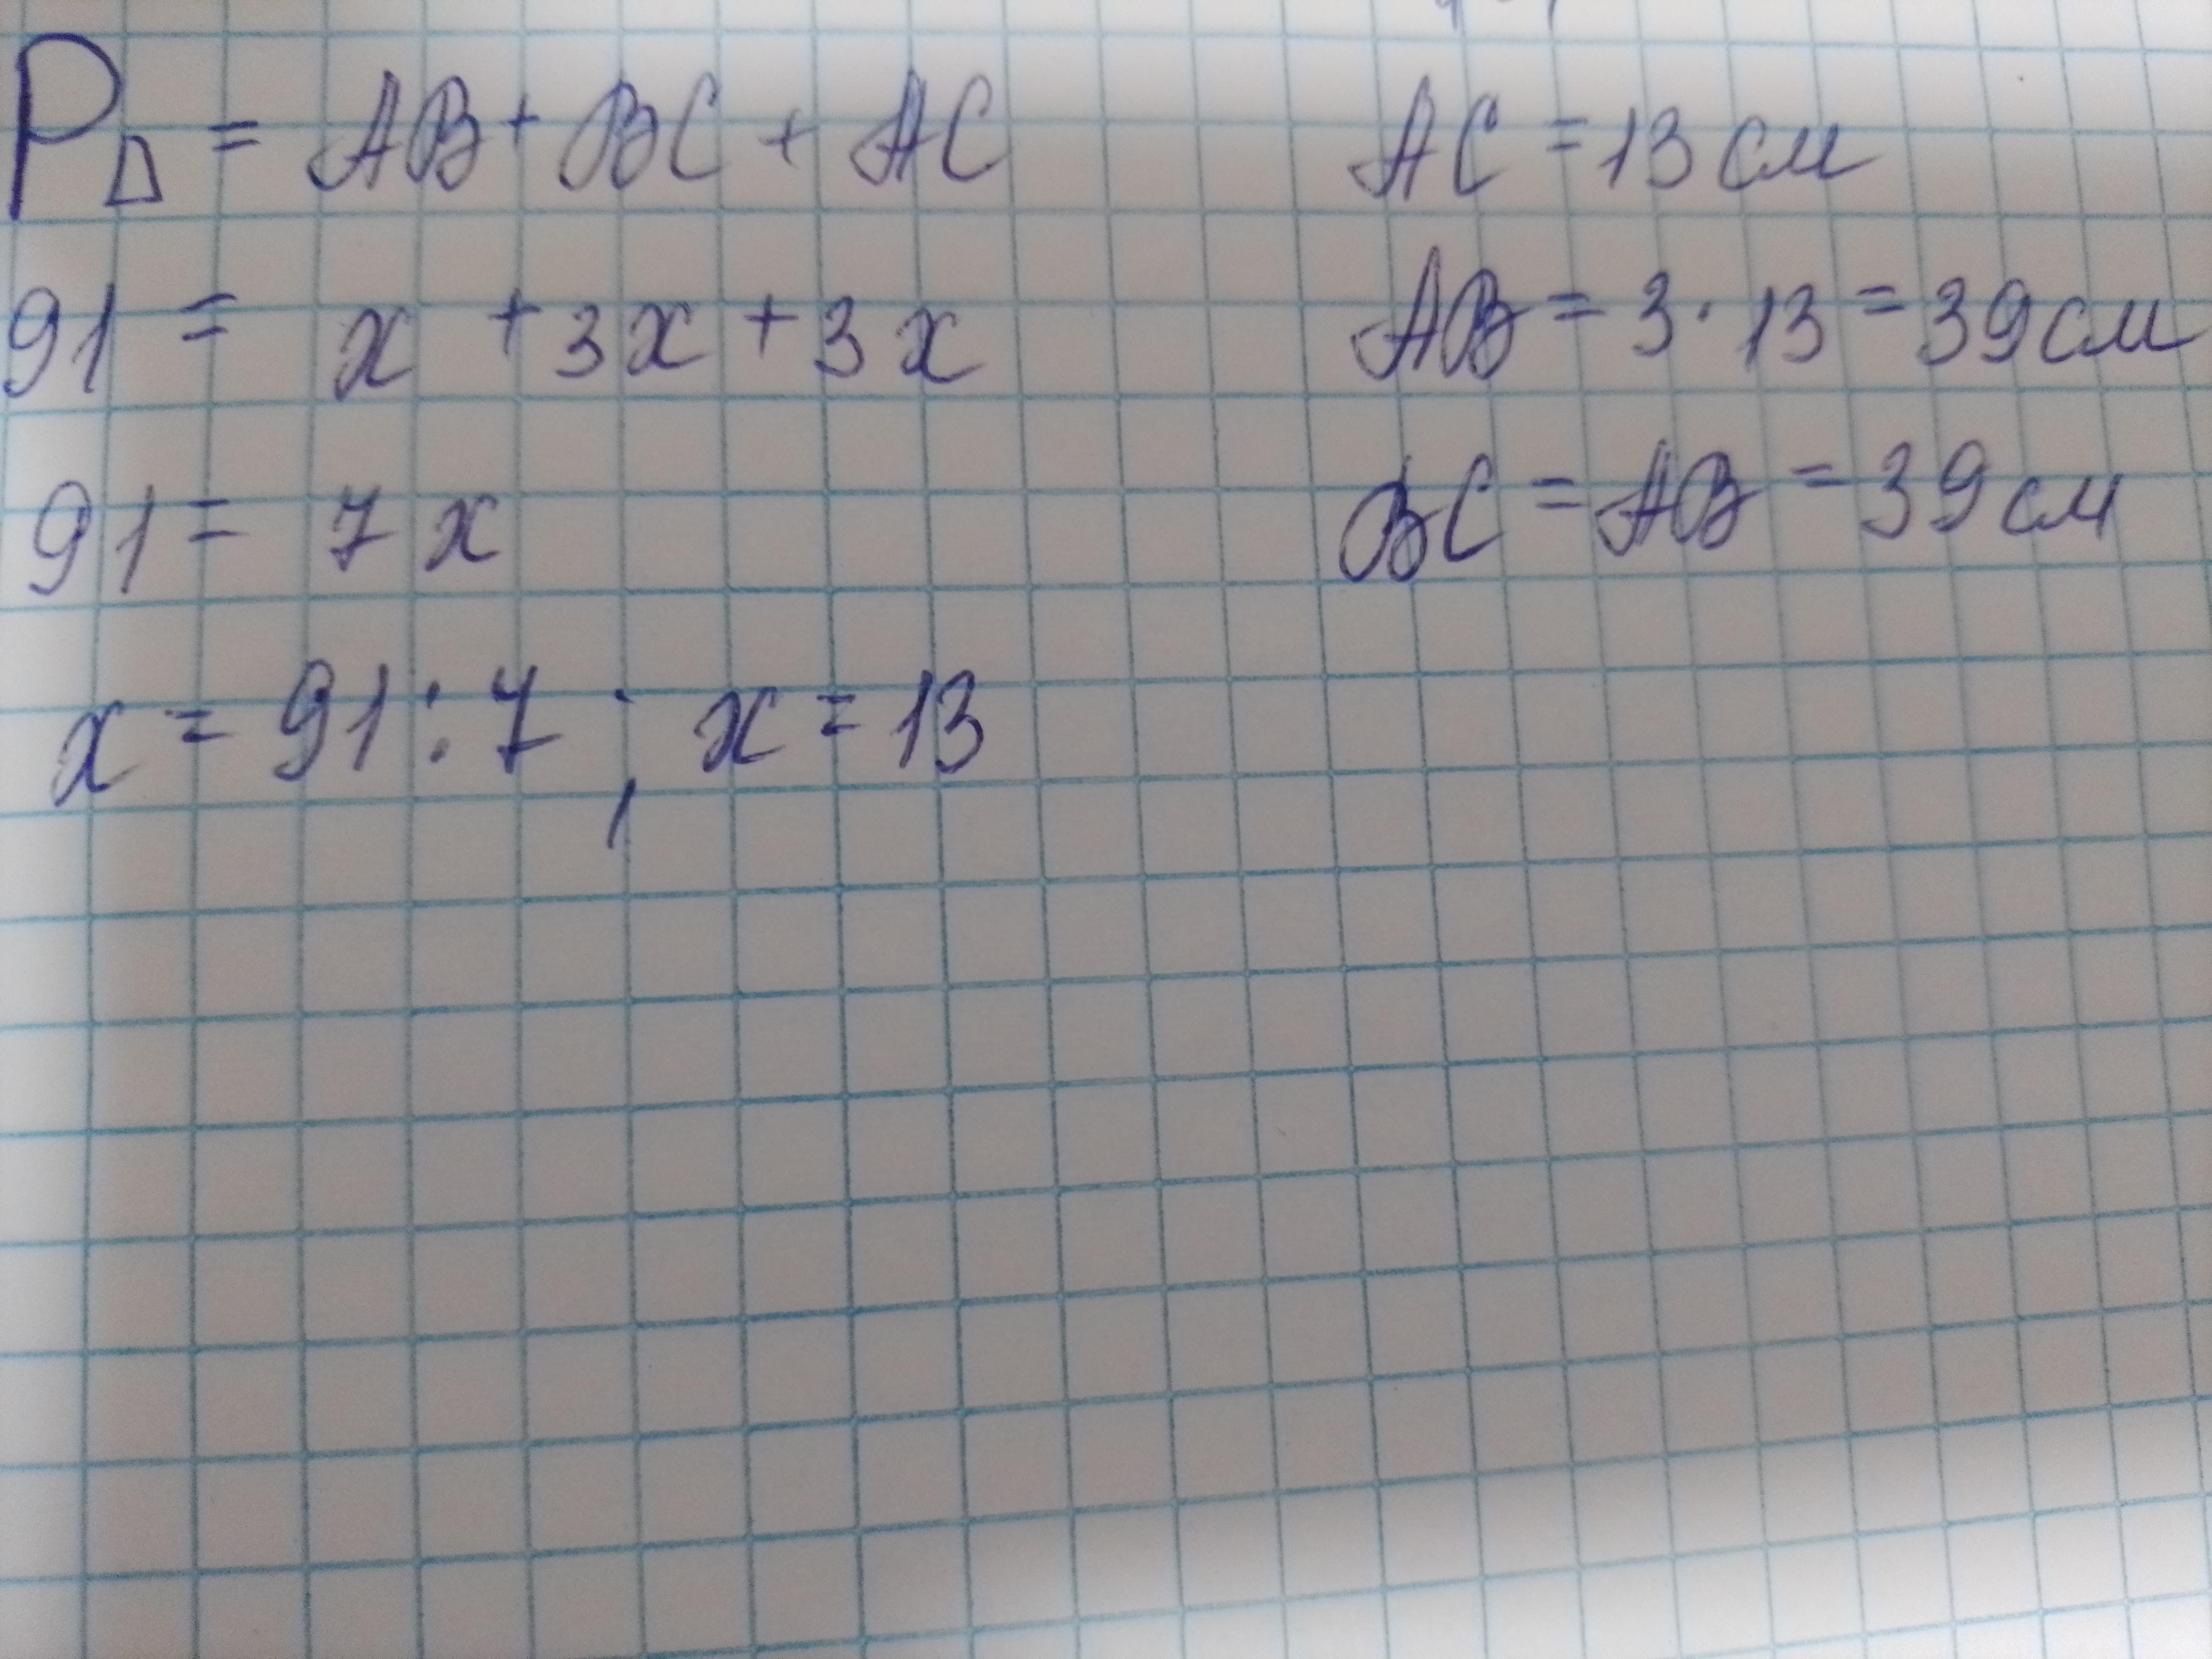 P△ = AB + BC + AC
91 = x + 3x + 3x
91 = 7x
x = 91 : 7 ; x = 13
AC = 13 см
AB = 3 · 13 = 39 см
BC = AB = 39 см